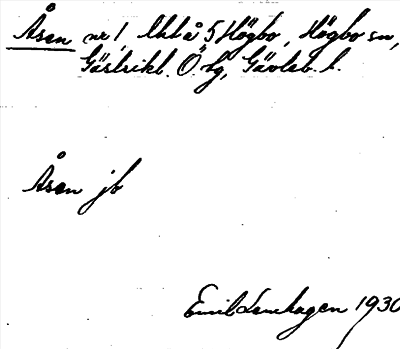 Åsen nr 1 Uttå 5 Högbo, Högbo sn,
Gästrikl. Ö. tg, Gävleb. l.
Åsen jb
Emil Lenhagen 1930